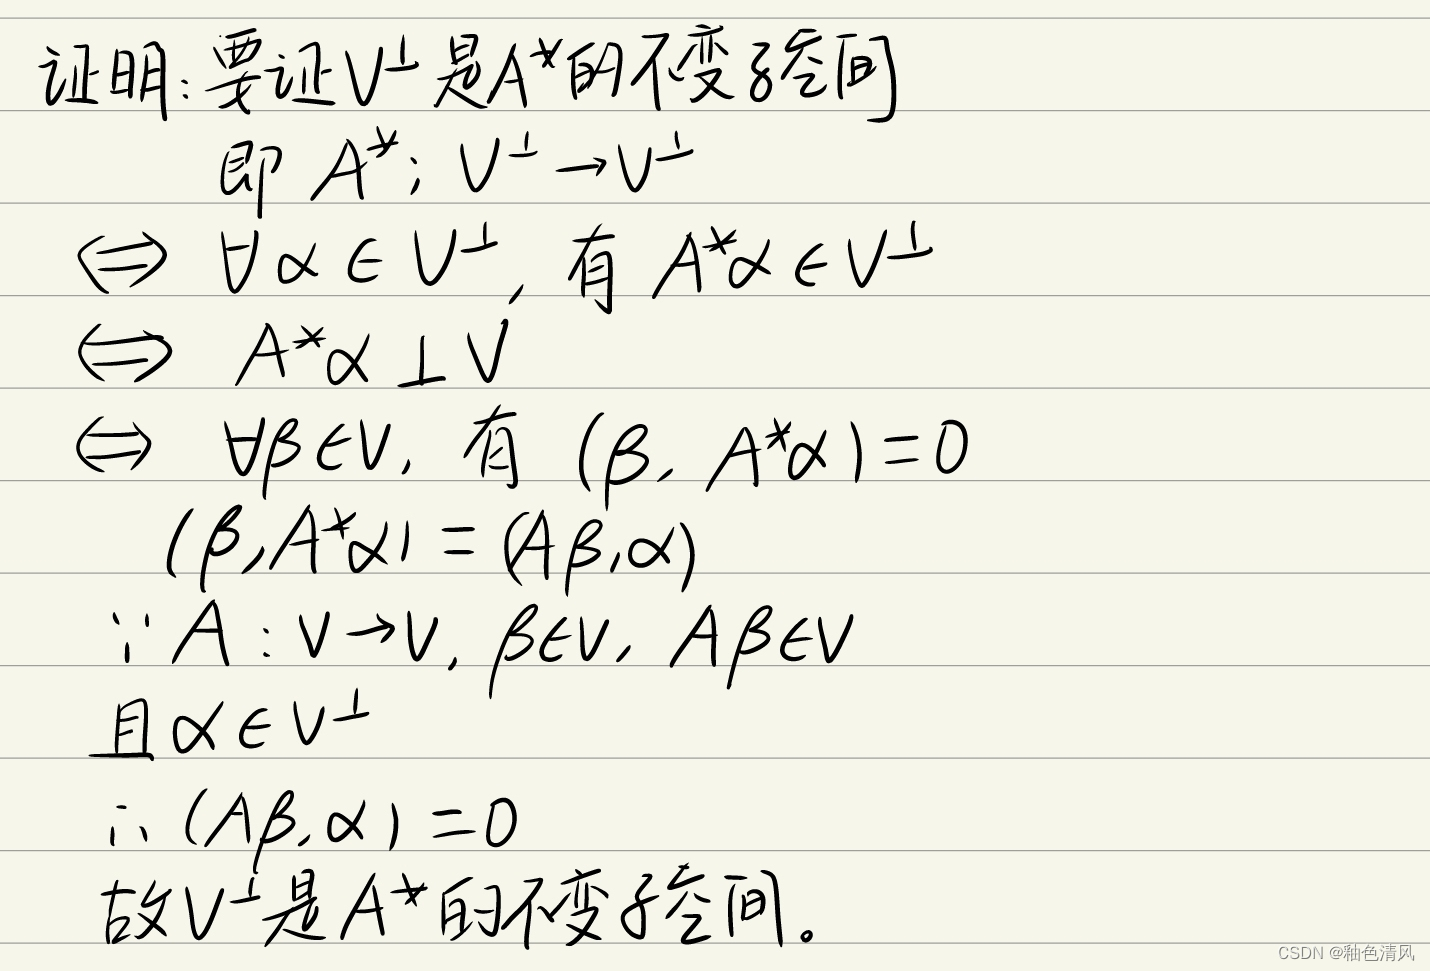 证明:要证V⊥是A*的不变子空间
即 A*: V⊥→V⊥
⇔ ∀α∈V⊥, 有 A*α∈V⊥
⇔ A*α⊥V
⇔ ∀β∈V, 有 (β, A*α)=0
(β,A*α)=(Aβ,α)
∵A:V→V, β∈V, Aβ∈V
且α∈V⊥
∴(Aβ,α)=0
故V⊥是A*的不变子空间。
CSDN @釉色清风